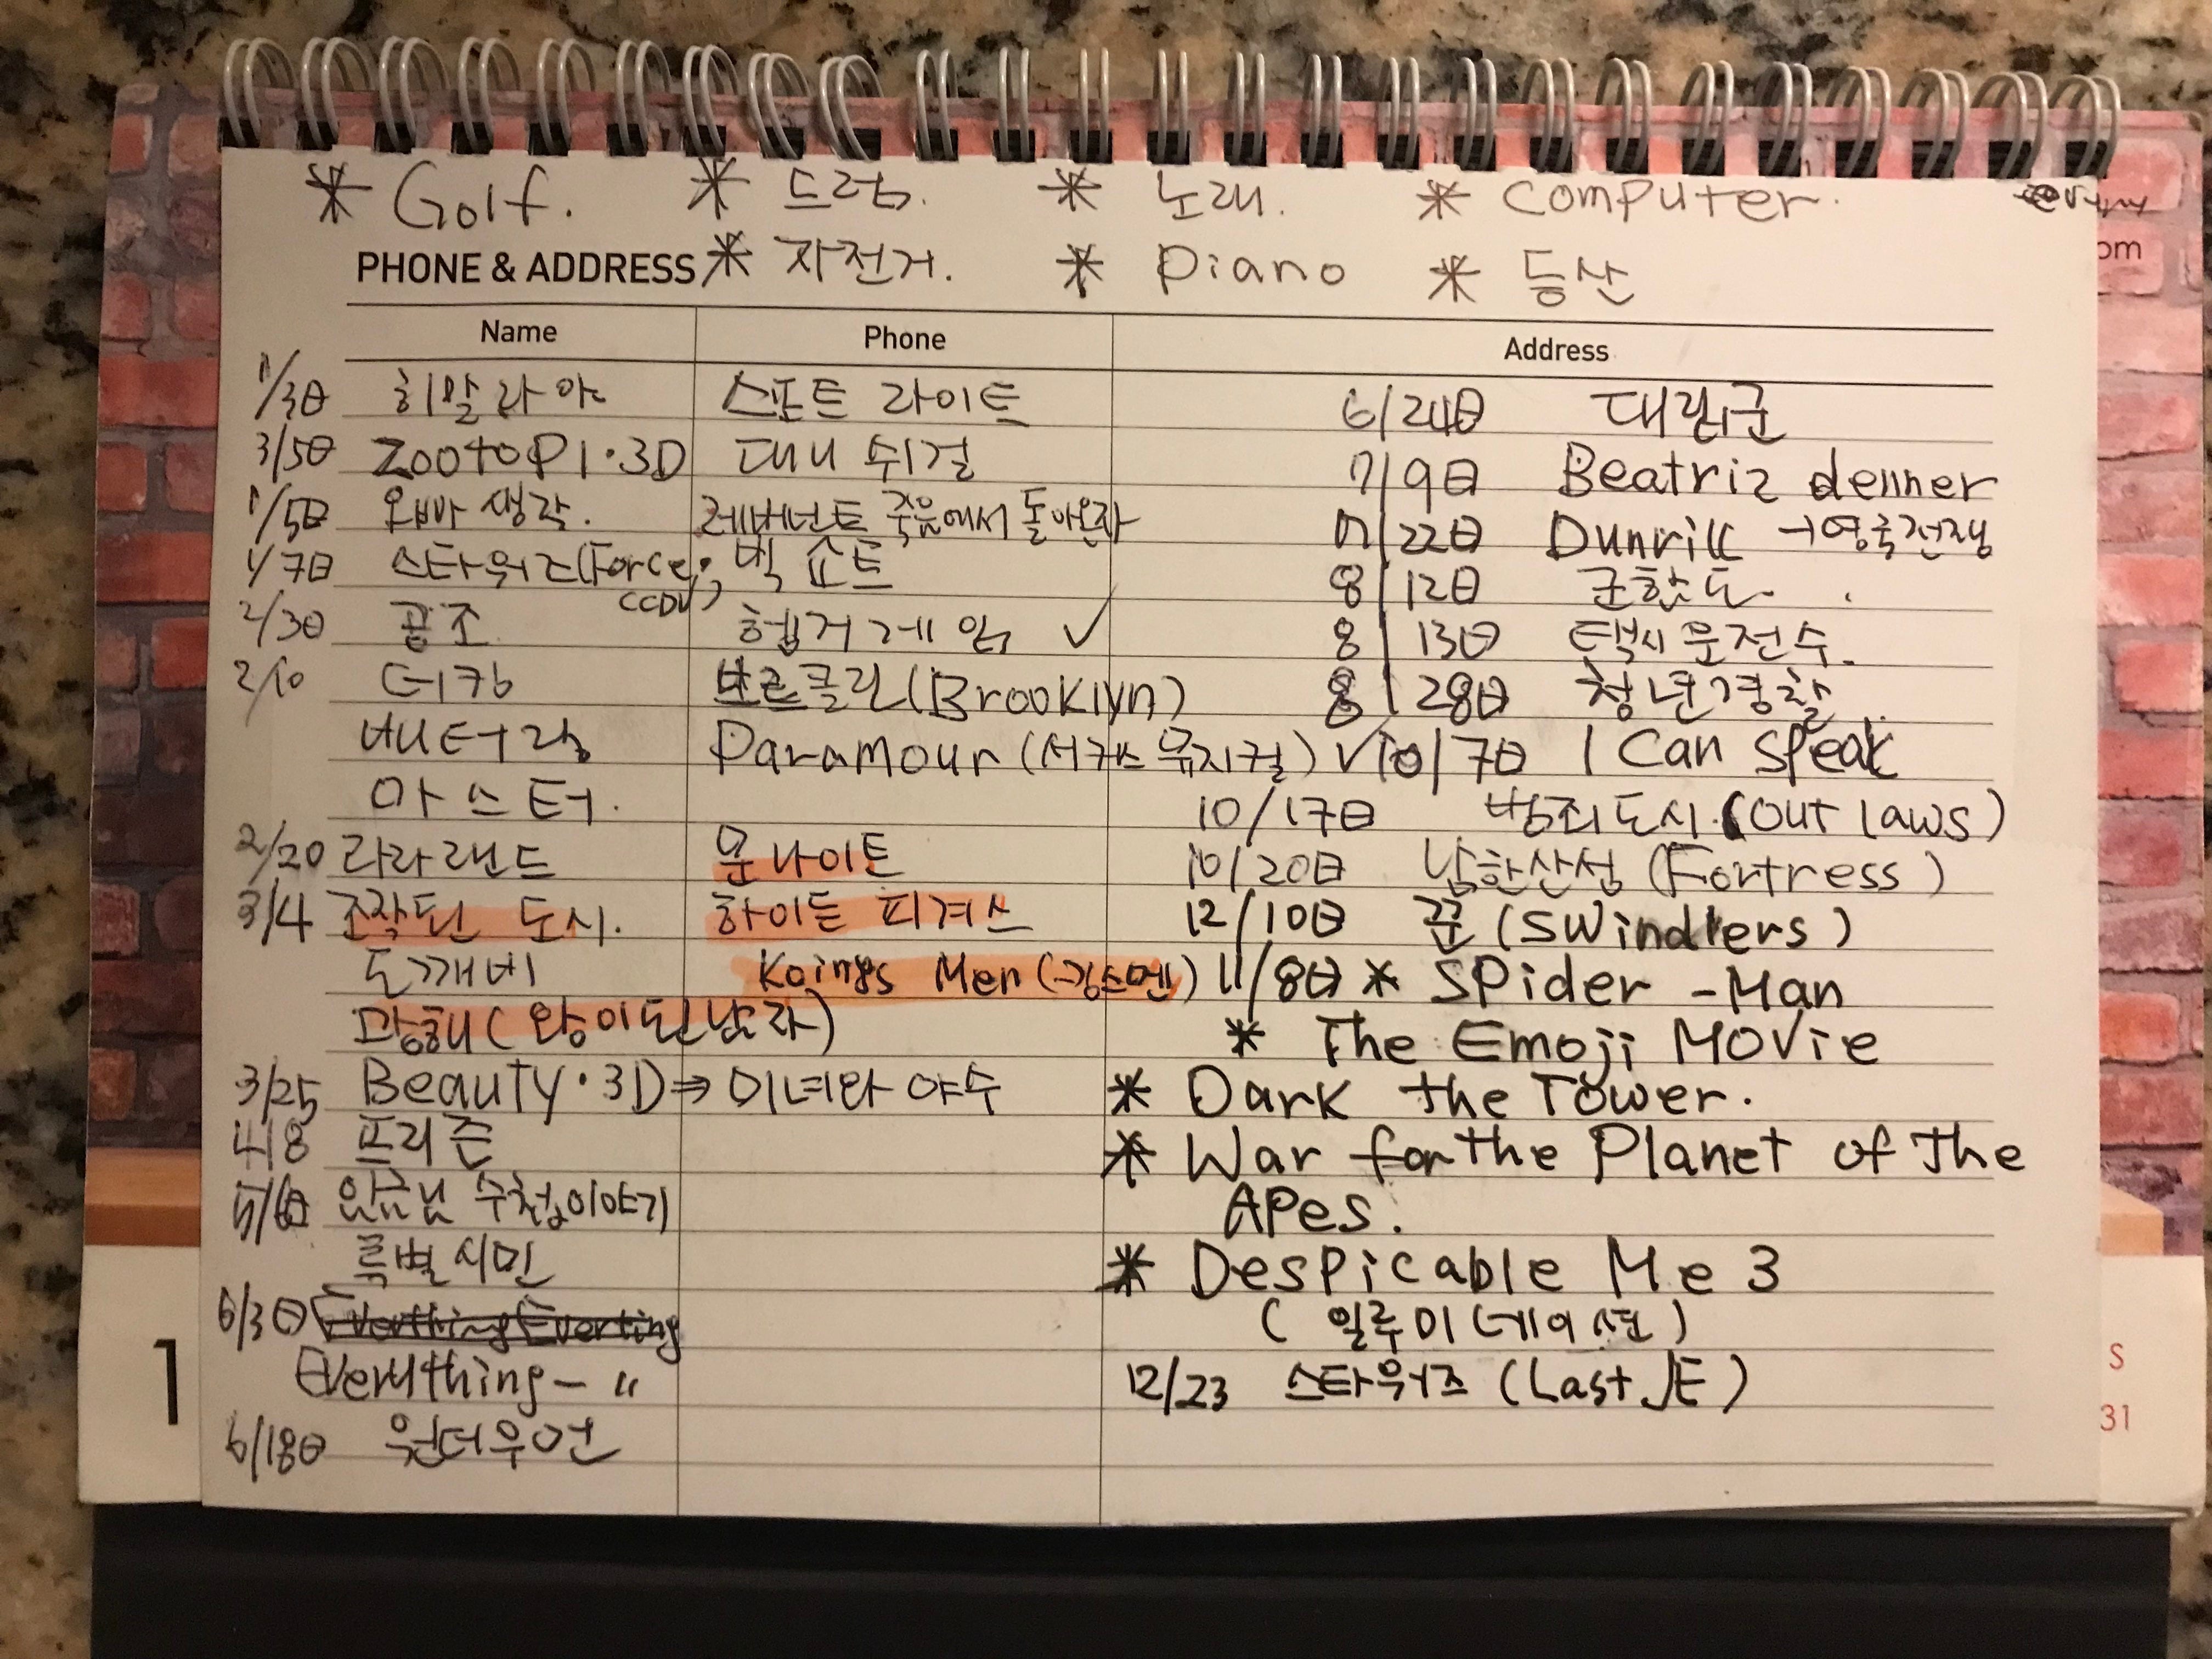 * Golf. * 드럼. * 노래. * Computer.
PHONE & ADDRESS * 자전거. * Piano * 등산
om
Name Phone Address
1/3日 히말라야 스포트 라이트 6/24日 대립군
3/5日 ZootoPI·3D 대니 쉬걸 7/9日 Beatriz denner
1/5日 오빠 생각. 레버넌트 죽음에서 돌아온자 7/22日 Dunrill →영국전쟁
1/7日 스타워즈(Force, 빅 쇼트 8/12日 군함도.
2/3日 공조 헝거게임 ✓ 8/13日 택시운전수.
2/10 더킹 브르클린(Brooklyn) 8/28日 청년경찰
베테랑 Paramour (서커스 뮤지컬) ✓ 10/7日 I Can Speak
마스터. 10/17日 범죄도시. (Out laws)
2/20 라라랜드 문나이트 10/20日 남한산성 (Fortress)
3/4 조작된 도시. 하이든 피겨스 12/10日 꾼 (SWindlers)
도깨비 Koings Men (킹스멘) 11/8日 * SPider -Man
광해(왕이된남자) * The Emoji MOVie
3/25 Beauty·3D⇒ 미녀와 야수 * Dark the Tower.
4/8 프리즌 * War for the Planet of The
임금님 수첩이야기 APes.
특별시민 * DesPicable Me 3
6/3日 (일루미네이션)
Everything - 〃 12/23 스타워즈 (Last JE)
6/18日 원더우먼
1
S
31